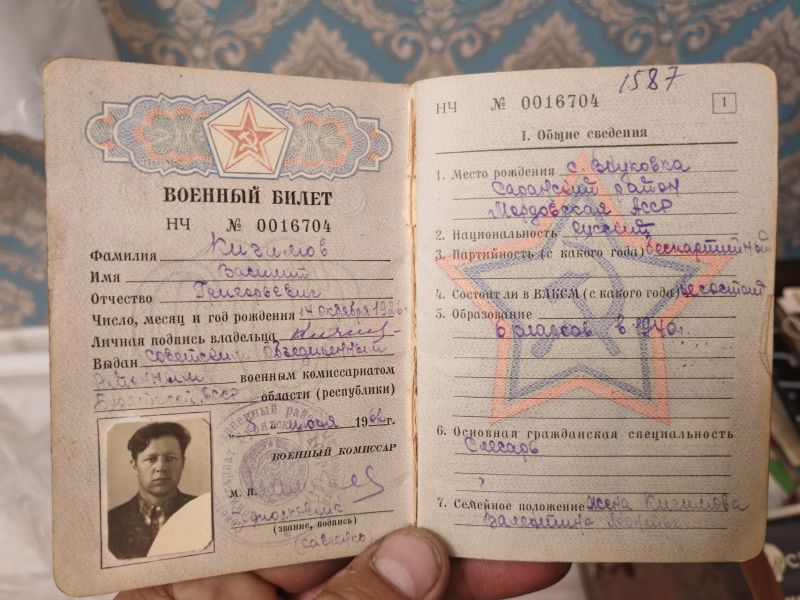 ВОЕННЫЙ БИЛЕТ
НЧ № 0016704
Фамилия Кизимов
Имя Василий
Отчество Григорьевич
Число, месяц и год рождения 14 октября 1926г.
Личная подпись владельца
Выдан Советским объединенным
районным военным комиссариатом
Бурятской АССР области (республики)
„8" июня 1962 г.
ВОЕННЫЙ КОМИССАР
М. П.
Подполковник
(звание, подпись)
НЧ № 0016704
1587
1
I. Общие сведения
1. Место рождения с.
Саранский район
Мордовская АССР
2. Национальность русский
3. Партийность (с какого года) беспартийный
4. Состоит ли в ВЛКСМ (с какого года) не состоит
5. Образование
6 классов в 1940г.
6. Основная гражданская специальность
Слесарь
7. Семейное положение Жена Кизимова
Валентина